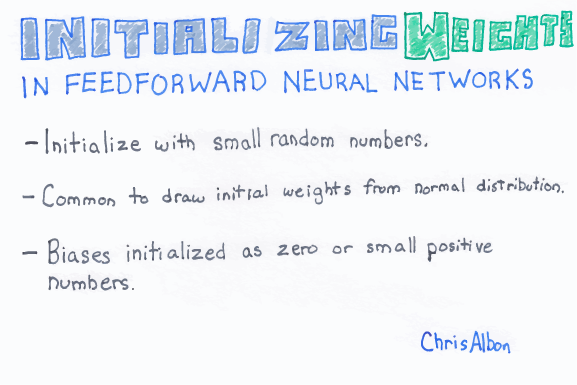 INITIALIZING WEIGHTS
IN FEEDFORWARD NEURAL NETWORKS
- Initialize with small random numbers.
- Common to draw initial weights from normal distribution.
- Biases initialized as zero or small positive
numbers.
Chris Albon